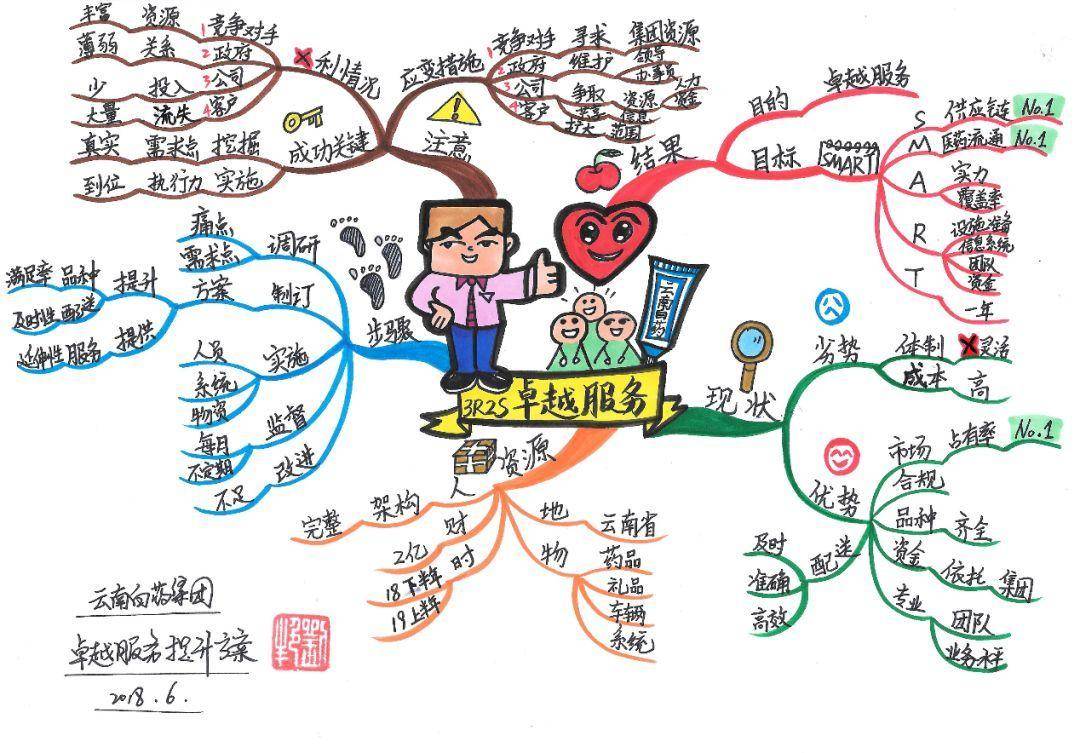 3R2S 卓越服务
云南白药
结果
目的
卓越服务
目标
SMART
S
供应链
No.1
M
医药流通
No.1
A
实力
覆盖率
R
设施设备
信息系统
团队
资金
T
一年
现状
劣势
体制
灵活
成本
高
优势
市场
占有率
No.1
合规
品种
齐全
资金
依托
集团
专业
团队
业务水平
配送
及时
准确
高效
资源
人
架构
完整
财
2亿
时
18下半年
19上半年
地
云南省
物
药品
礼品
车辆
系统
步骤
调研
痛点
需求点
制订
方案
提升
品种
满足率
配送
及时性
提供
延伸性服务
实施
人员
系统
物资
监督
每日
不定期
改进
不足
注意
成功关键
利情况
1 竞争对手
资源
丰富
2 政府
关系
薄弱
3 公司
投入
少
4 客户
流失
大量
挖掘
需求点
真实
实施
执行力
到位
应变措施
1 竞争对手
寻求
集团资源
2 政府
维护
领导
办事员
3 公司
争取
资源
人力
资金
4 客户
共享
信息
扩大
范围
云南白药集团
卓越服务提升方案
2018.6.